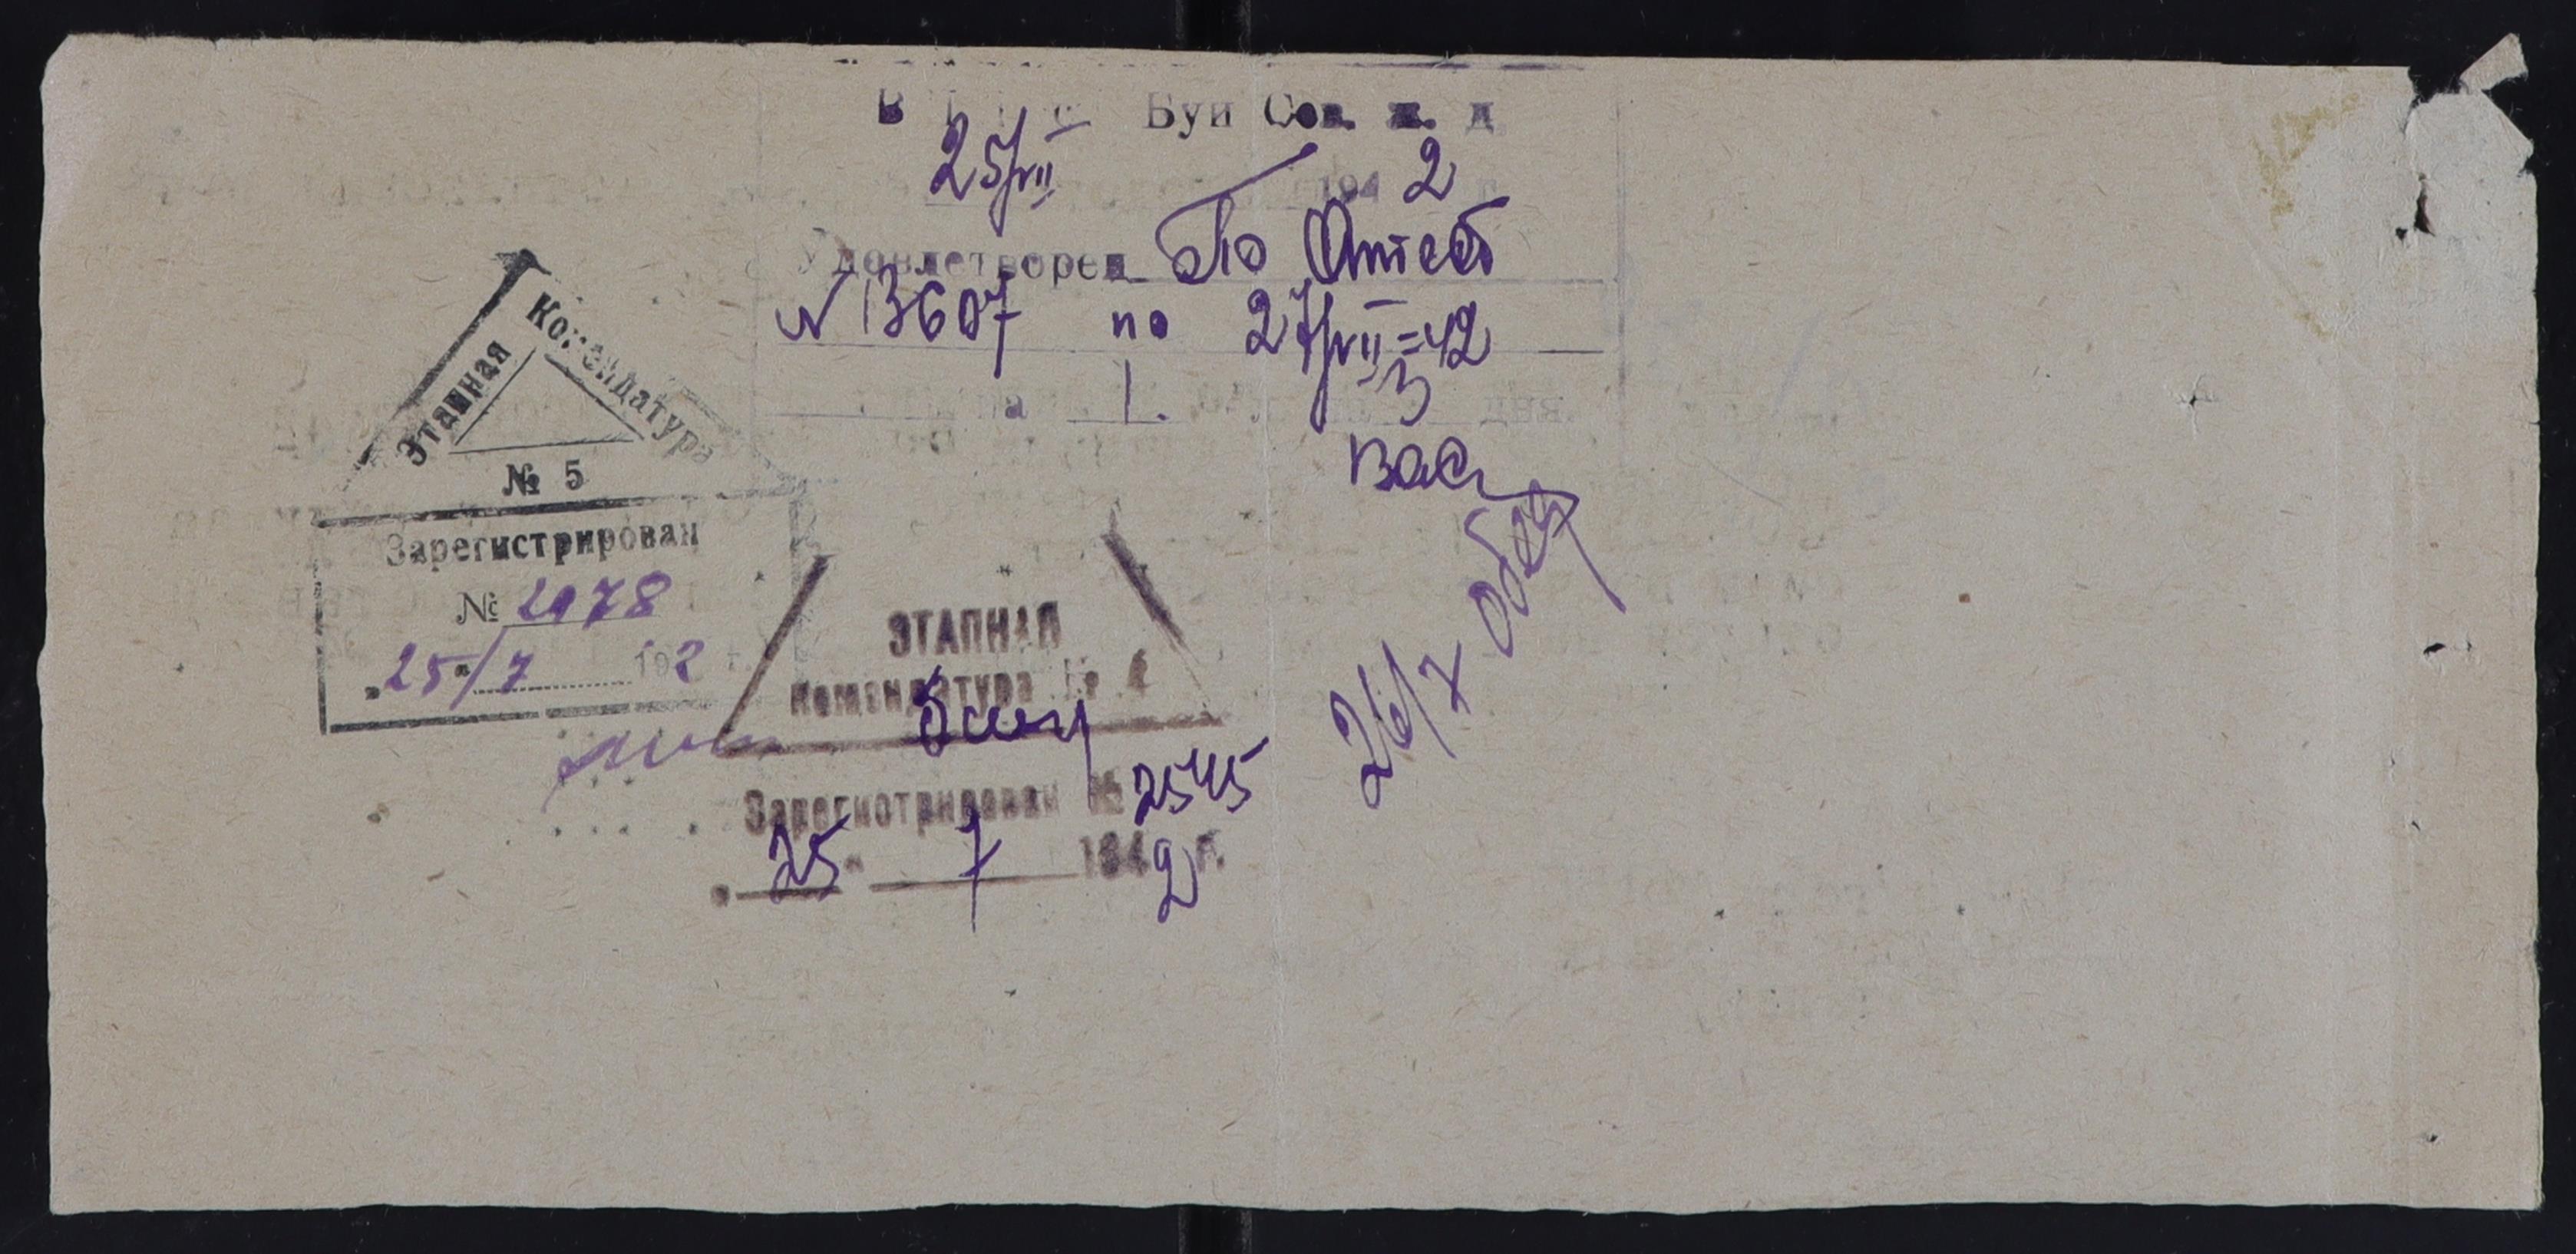 Буй Сев. ж. д.
25/VII 1942 г.
Удовлетворен По Аттест
№ 13607 по 27/VII=42
на 1. дня.
Этапная Комендатура
№ 5
Зарегистрирован
№ 2078
"25"/7 1942 г.
ЭТАПНАЯ
Комендатура № 4
Зарегистрирован № 2545
"25" 7 1942 г.
26/7 обед